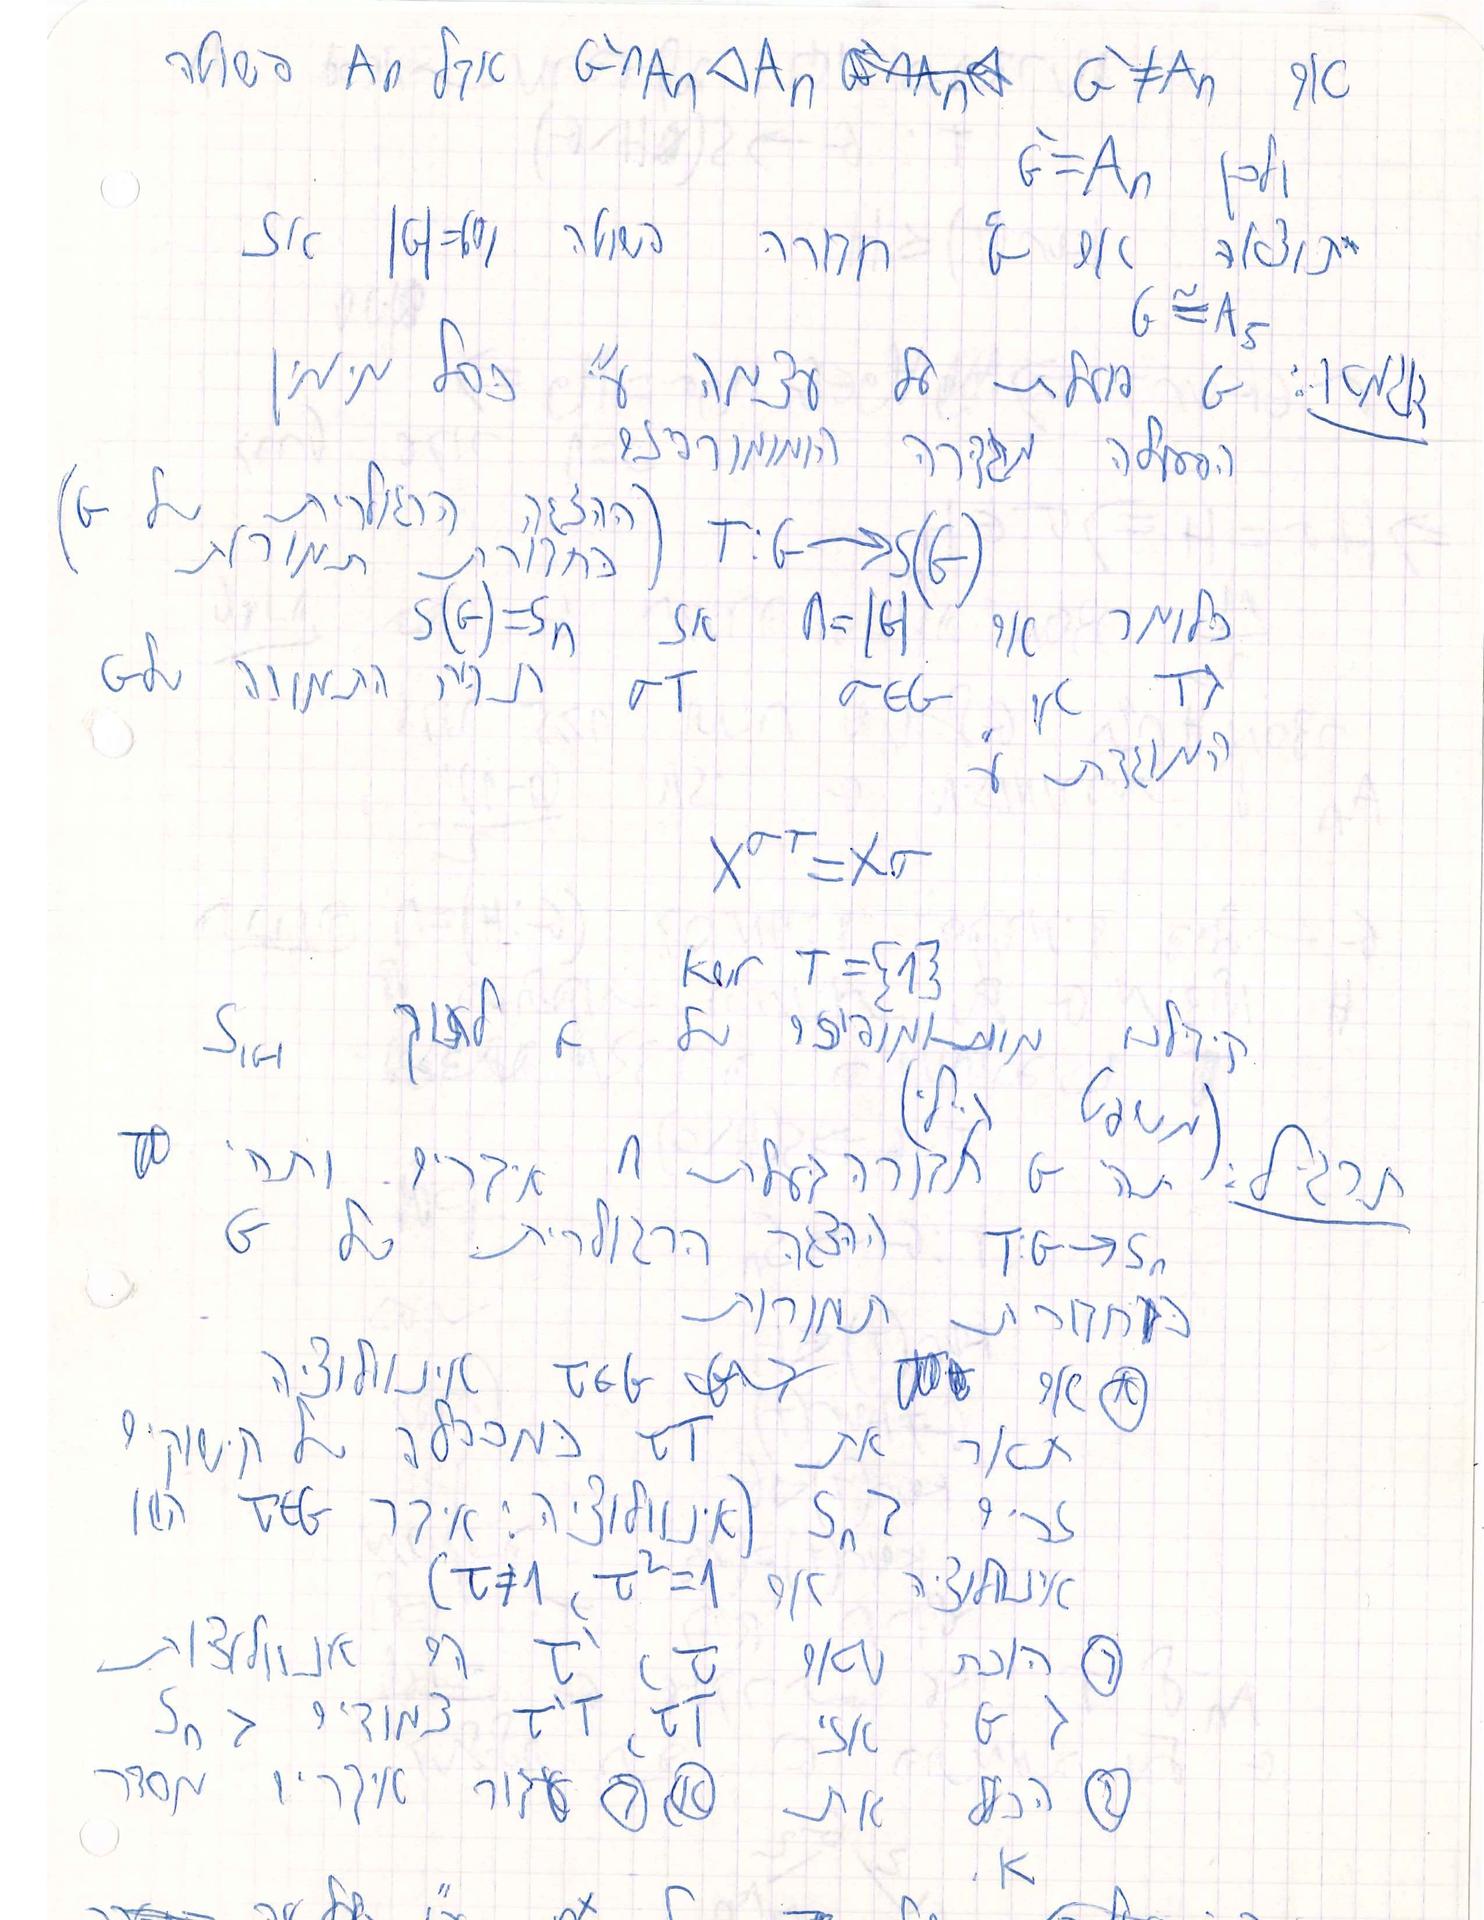 אם G'≠A_n G'∩A_n ◁ A_n אבל A_n פשוטה
ולכן G'=A_n
תוצאה אם G חבורה פשוטה |G|=60 אז
G≅A_5
דוגמה: G פועלת על עצמה ע"י כפל מימין
הפעולה מגדירה הומומורפיזם
T:G→S(G) (ההצגה הרגולרית של G
כחבורת תמורות)
כלומר אם n=|G| אז S(G)=S_n
אם σ∈G σT תהיה התמורה של G
המוגדרת ע"י
X^{σT}=Xσ
ker T={1}
קיבלנו מונומורפיזם של G לתוך S_{|G|}
(משפט קיילי)
תרגיל: תהי G חבורה בעלת n איברים ותהי
T:G→S_n ההצגה הרגולרית של G
כחבורת תמורות
(א) אם τ∈G אינוולוציה
תאר את τT כמכפלה של קישוקים
זרים ב S_n (אינוולוציה: איבר τ∈G הוא
אינוולוציה אם τ²=1, τ≠1)
(ב) הוכח שאם τ, τ' הם אינוולוציות
ב G אזי τT, τ'T צמודים ב S_n
(ג) הכלל את (א) (ב) עבור איברים מסדר
k.